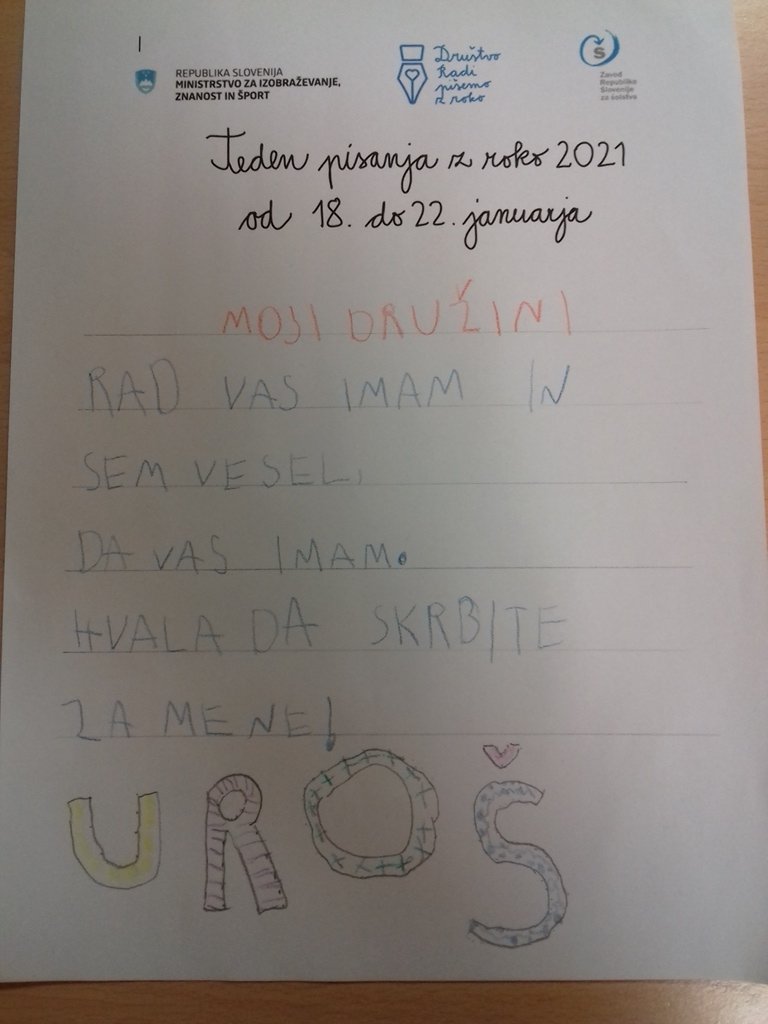 REPUBLIKA SLOVENIJA
MINISTRSTVO ZA IZOBRAŽEVANJE,
ZNANOST IN ŠPORT
Društvo
Radi
pišemo
z roko
Š
Zavod
Republike
Slovenije
za šolstvo
Teden pisanja z roko 2021
od 18. do 22. januarja
MOJI DRUŽINI
RAD VAS IMAM IN
SEM VESEL,
DA VAS IMAM.
HVALA DA SKRBITE
ZA MENE!
UROŠ